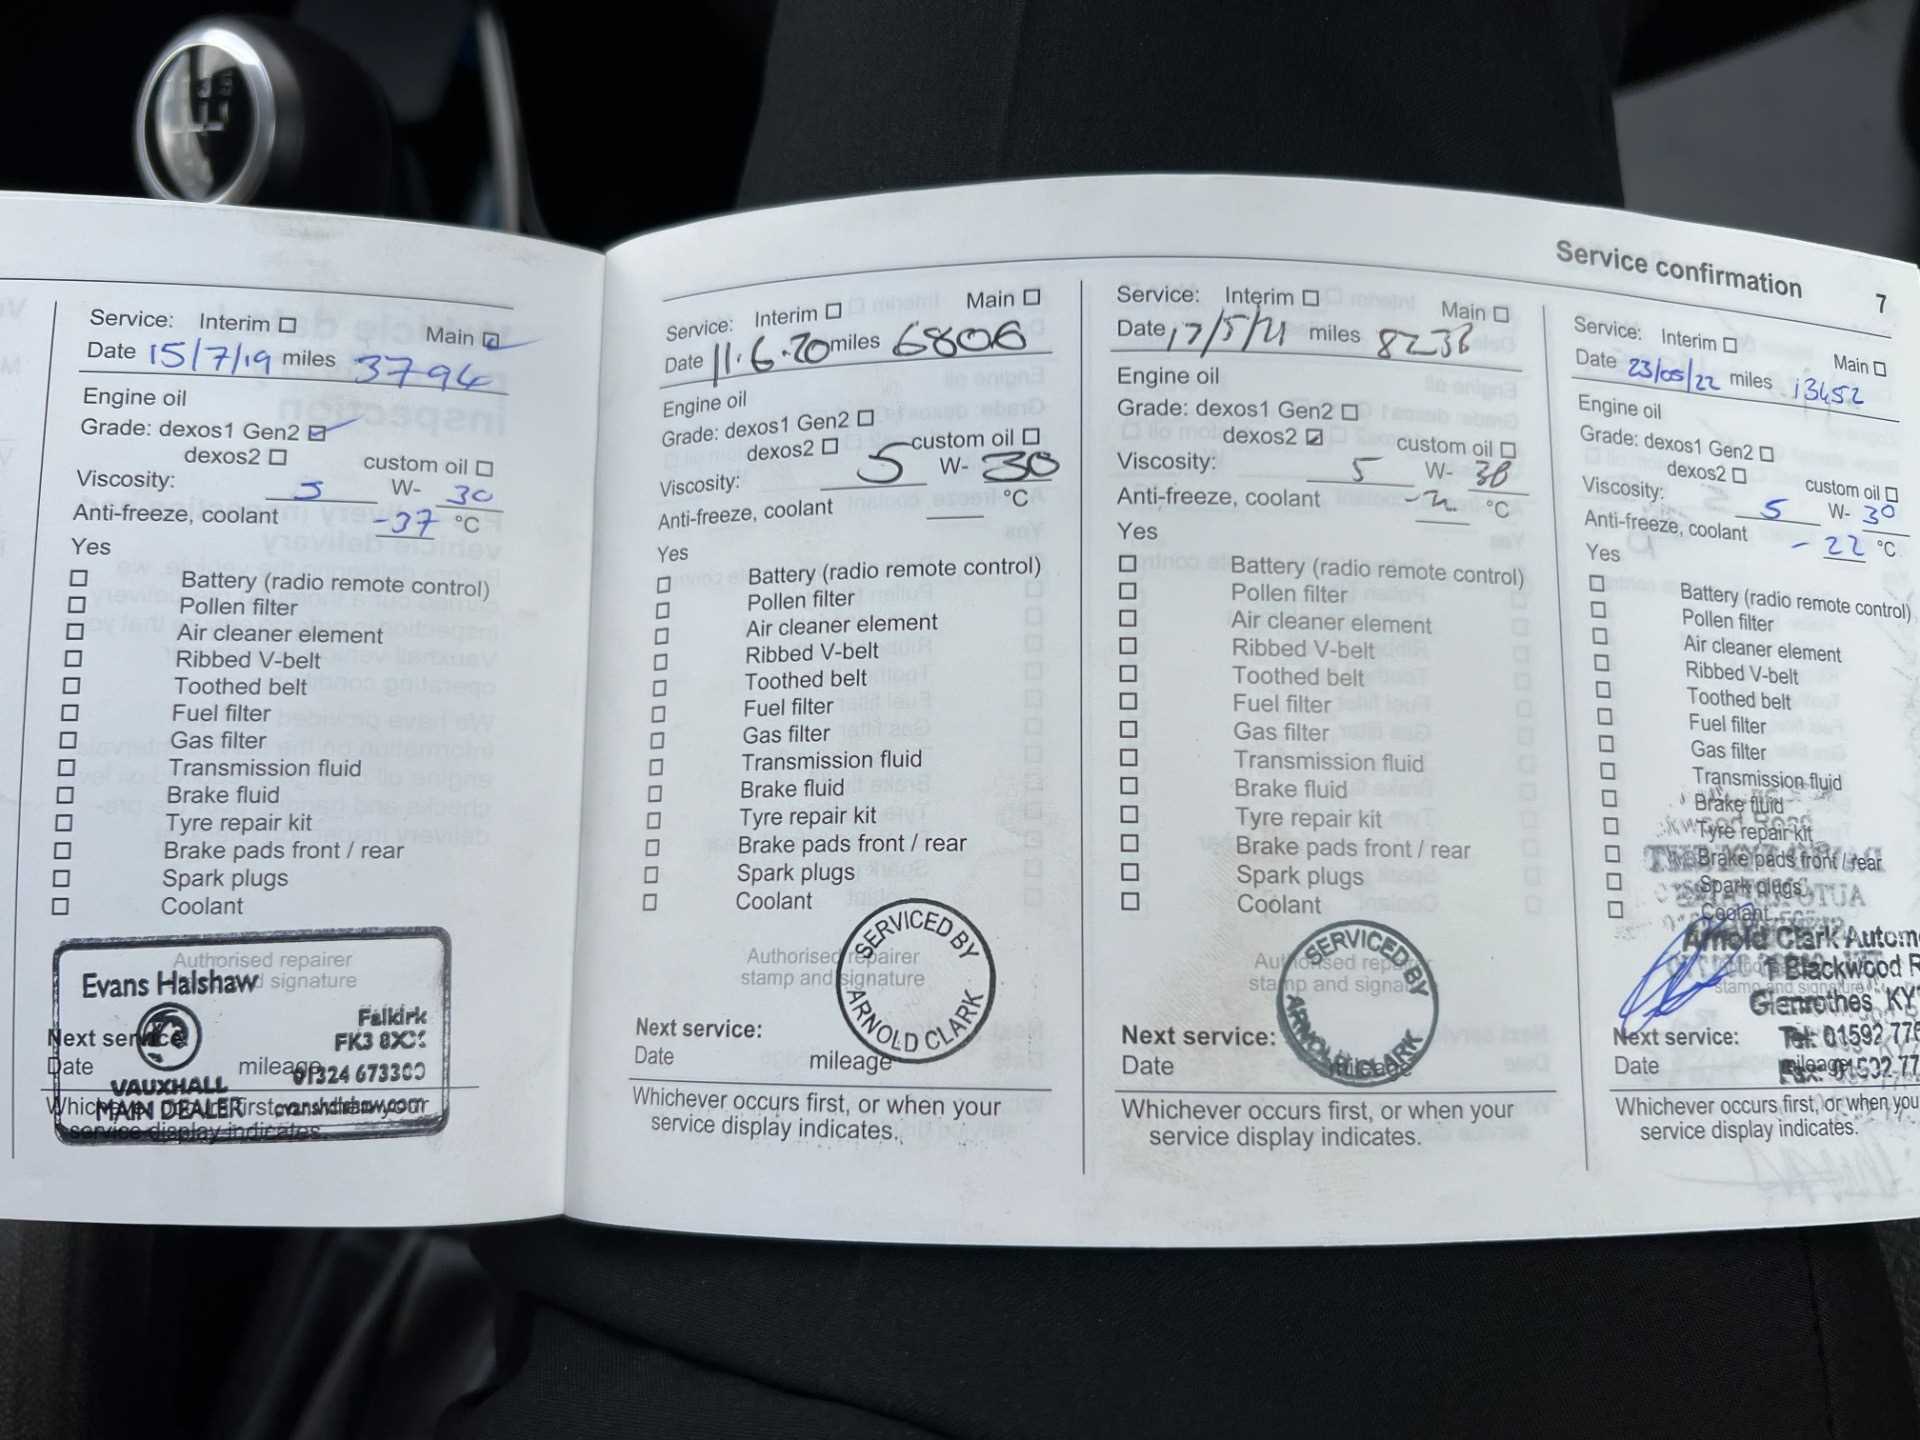 Service confirmation 7
Service: Interim ☐ Main ☑
Date 15/7/19 miles 3794
Engine oil
Grade: dexos1 Gen2 ☑
dexos2 ☐ custom oil ☐
Viscosity: 5 W- 30
Anti-freeze, coolant -37 °C
Yes
☐ Battery (radio remote control)
☐ Pollen filter
☐ Air cleaner element
☐ Ribbed V-belt
☐ Toothed belt
☐ Fuel filter
☐ Gas filter
☐ Transmission fluid
☐ Brake fluid
☐ Tyre repair kit
☐ Brake pads front / rear
☐ Spark plugs
☐ Coolant
Authorised repairer
signature
Evans Halshaw
Falkirk
FK3
01324 673300
VAUXHALL
MAIN DEALER
Next service:
Date mileage
Whichever occurs first, or when your
service display indicates.
Service: Interim ☐ Main ☐
Date 11.6.20 miles 6806
Engine oil
Grade: dexos1 Gen2 ☐
dexos2 ☐ custom oil ☐
Viscosity: 5 W- 30
Anti-freeze, coolant °C
Yes
☐ Battery (radio remote control)
☐ Pollen filter
☐ Air cleaner element
☐ Ribbed V-belt
☐ Toothed belt
☐ Fuel filter
☐ Gas filter
☐ Transmission fluid
☐ Brake fluid
☐ Tyre repair kit
☐ Brake pads front / rear
☐ Spark plugs
☐ Coolant
Authorised repairer
stamp and signature
SERVICED BY
ARNOLD CLARK
Next service:
Date mileage
Whichever occurs first, or when your
service display indicates.
Service: Interim ☐ Main ☐
Date 17/5/21 miles
Engine oil
Grade: dexos1 Gen2 ☐
dexos2 ☑ custom oil ☐
Viscosity: 5 W- 30
Anti-freeze, coolant °C
Yes
☐ Battery (radio remote control)
☐ Pollen filter
☐ Air cleaner element
☐ Ribbed V-belt
☐ Toothed belt
☐ Fuel filter
☐ Gas filter
☐ Transmission fluid
☐ Brake fluid
☐ Tyre repair kit
☐ Brake pads front / rear
☐ Spark plugs
☐ Coolant
Authorised repairer
stamp and signature
SERVICED BY
ARNOLD CLARK
Next service:
Date mileage
Whichever occurs first, or when your
service display indicates.
Service: Interim ☐ Main ☐
Date 23/05/22 miles 13452
Engine oil
Grade: dexos1 Gen2 ☐
dexos2 ☐ custom oil ☐
Viscosity: 5 W- 30
Anti-freeze, coolant -22 °C
Yes
☐ Battery (radio remote control)
☐ Pollen filter
☐ Air cleaner element
☐ Ribbed V-belt
☐ Toothed belt
☐ Fuel filter
☐ Gas filter
☐ Transmission fluid
☐ Brake fluid
☐ Tyre repair kit
☐ Brake pads front / rear
☐ Spark plugs
☐ Coolant
Arnold Clark Autom
1 Blackwood R
stamp and signature
Glenrothes, KY
Next service: Tel: 01592 77
Date mileage Fax: 01592 77
Whichever occurs first, or when you
service display indicates.